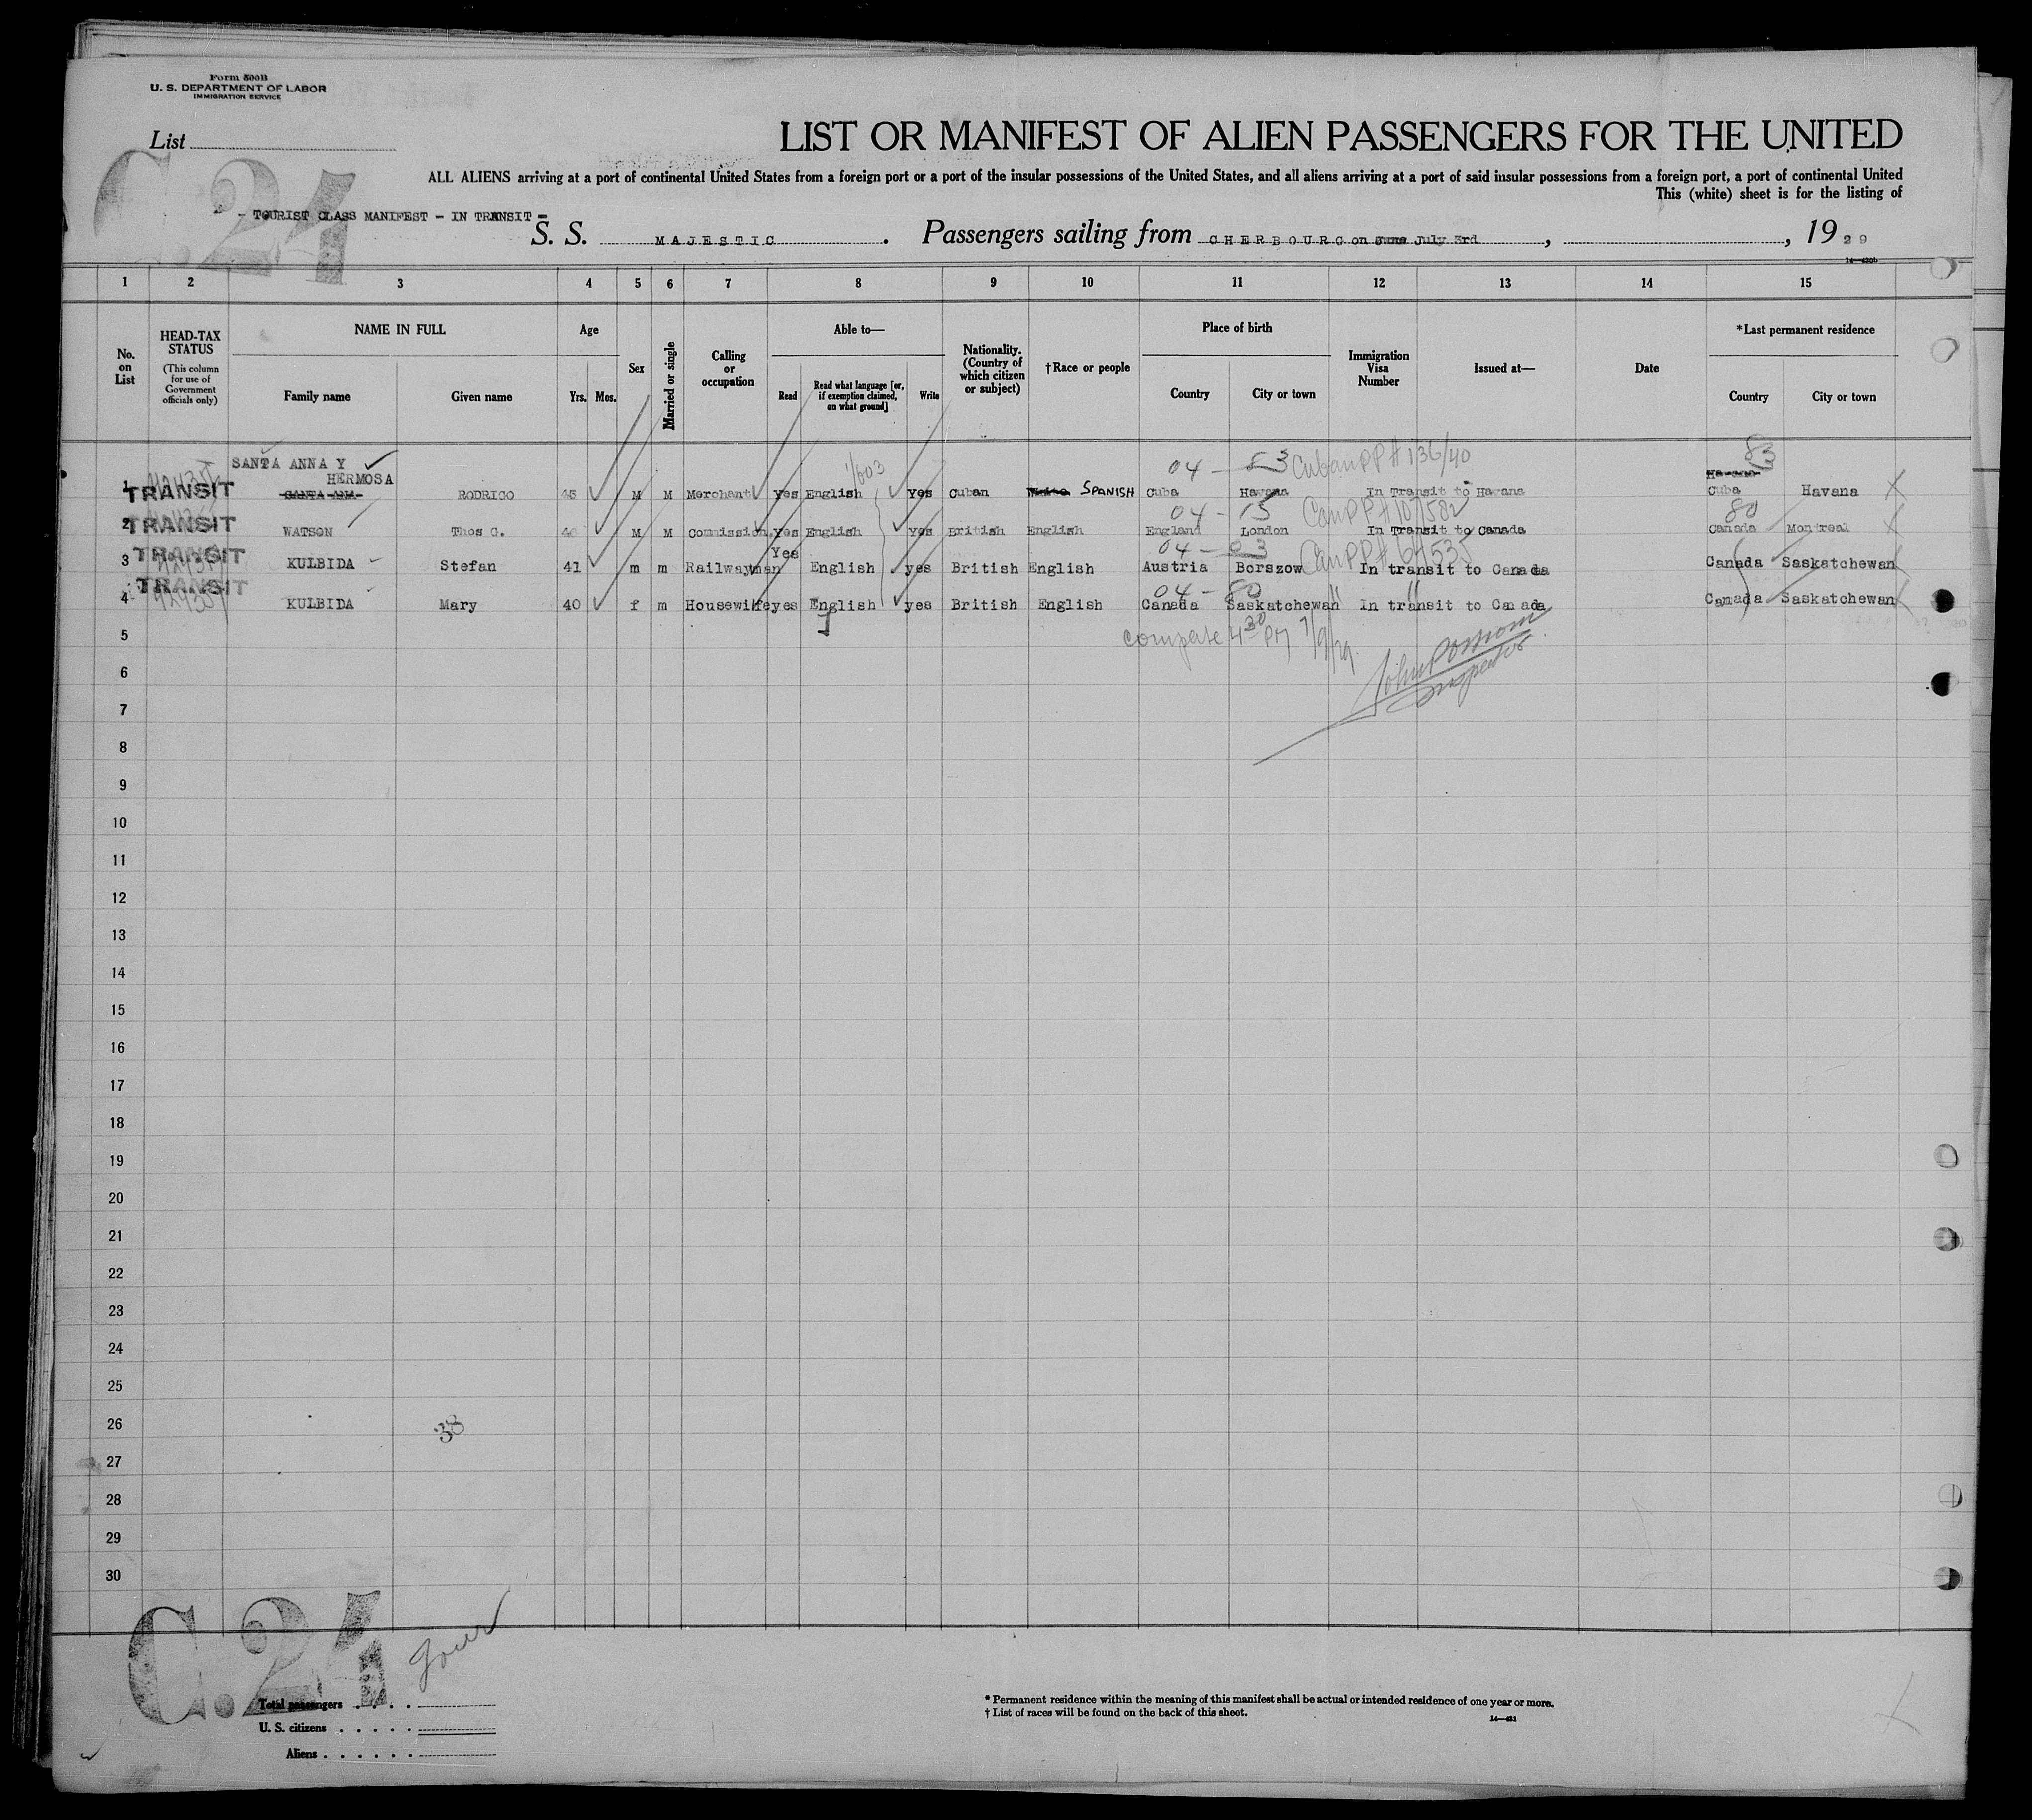 Form 500B
U. S. DEPARTMENT OF LABOR
IMMIGRATION SERVICE
List
C.24
LIST OR MANIFEST OF ALIEN PASSENGERS FOR THE UNITED
ALL ALIENS arriving at a port of continental United States from a foreign port or a port of the insular possessions of the United States, and all aliens arriving at a port of said insular possessions from a foreign port, a port of continental United
This (white) sheet is for the listing of
- TOURIST CLASS MANIFEST - IN TRANSIT -
S. S. MAJESTIC. Passengers sailing from CHERBOURG on June July 3rd, , 1929
14—430b
1 2 3 4 5 6 7 8 9 10 11 12 13 14 15
No. on List
HEAD-TAX STATUS
(This column for use of Government officials only)
NAME IN FULL
Family name Given name
Age
Yrs. Mos.
Sex
Married or single
Calling or occupation
Able to—
Read
Read what language [or, if exemption claimed, on what ground]
Write
Nationality. (Country of which citizen or subject)
†Race or people
Place of birth
Country City or town
Immigration Visa Number
Issued at—
Date
*Last permanent residence
Country City or town
SANTA ANNA Y
HERMOSA
1/603
04 - 53 Cuban PP # 136/40
83
Havana
1 TRANSIT SANTA ANA RODRICO 45 M M Merchant Yes English Yes Cuban White SPANISH Cuba Havana In Transit to Havana Cuba Havana X
04 - 15 Can PP # 107582
80
2 TRANSIT WATSON Thos C. M M Commission. Yes English Yes British English England London In Transit to Canada Canada Montreal X
04 - 03 Can PP #
3 TRANSIT KULBIDA Stefan 41 m m Railwayman Yes English yes British English Austria Borszow In transit to Canada Canada Saskatchewan
04 - 80 " "
4 TRANSIT KULBIDA Mary 40 f m Housewife yes English yes British English Canada Saskatchewan In transit to Canada Canada Saskatchewan
5
complete 4 30 PM 7/9/29.
John
Inspector
6
7
8
9
10
11
12
13
14
15
16
17
18
19
20
21
22
23
24
25
26
38
27
28
29
30
C.24
four
Total passengers
U. S. citizens
Aliens
* Permanent residence within the meaning of this manifest shall be actual or intended residence of one year or more.
† List of races will be found on the back of this sheet.
14—431